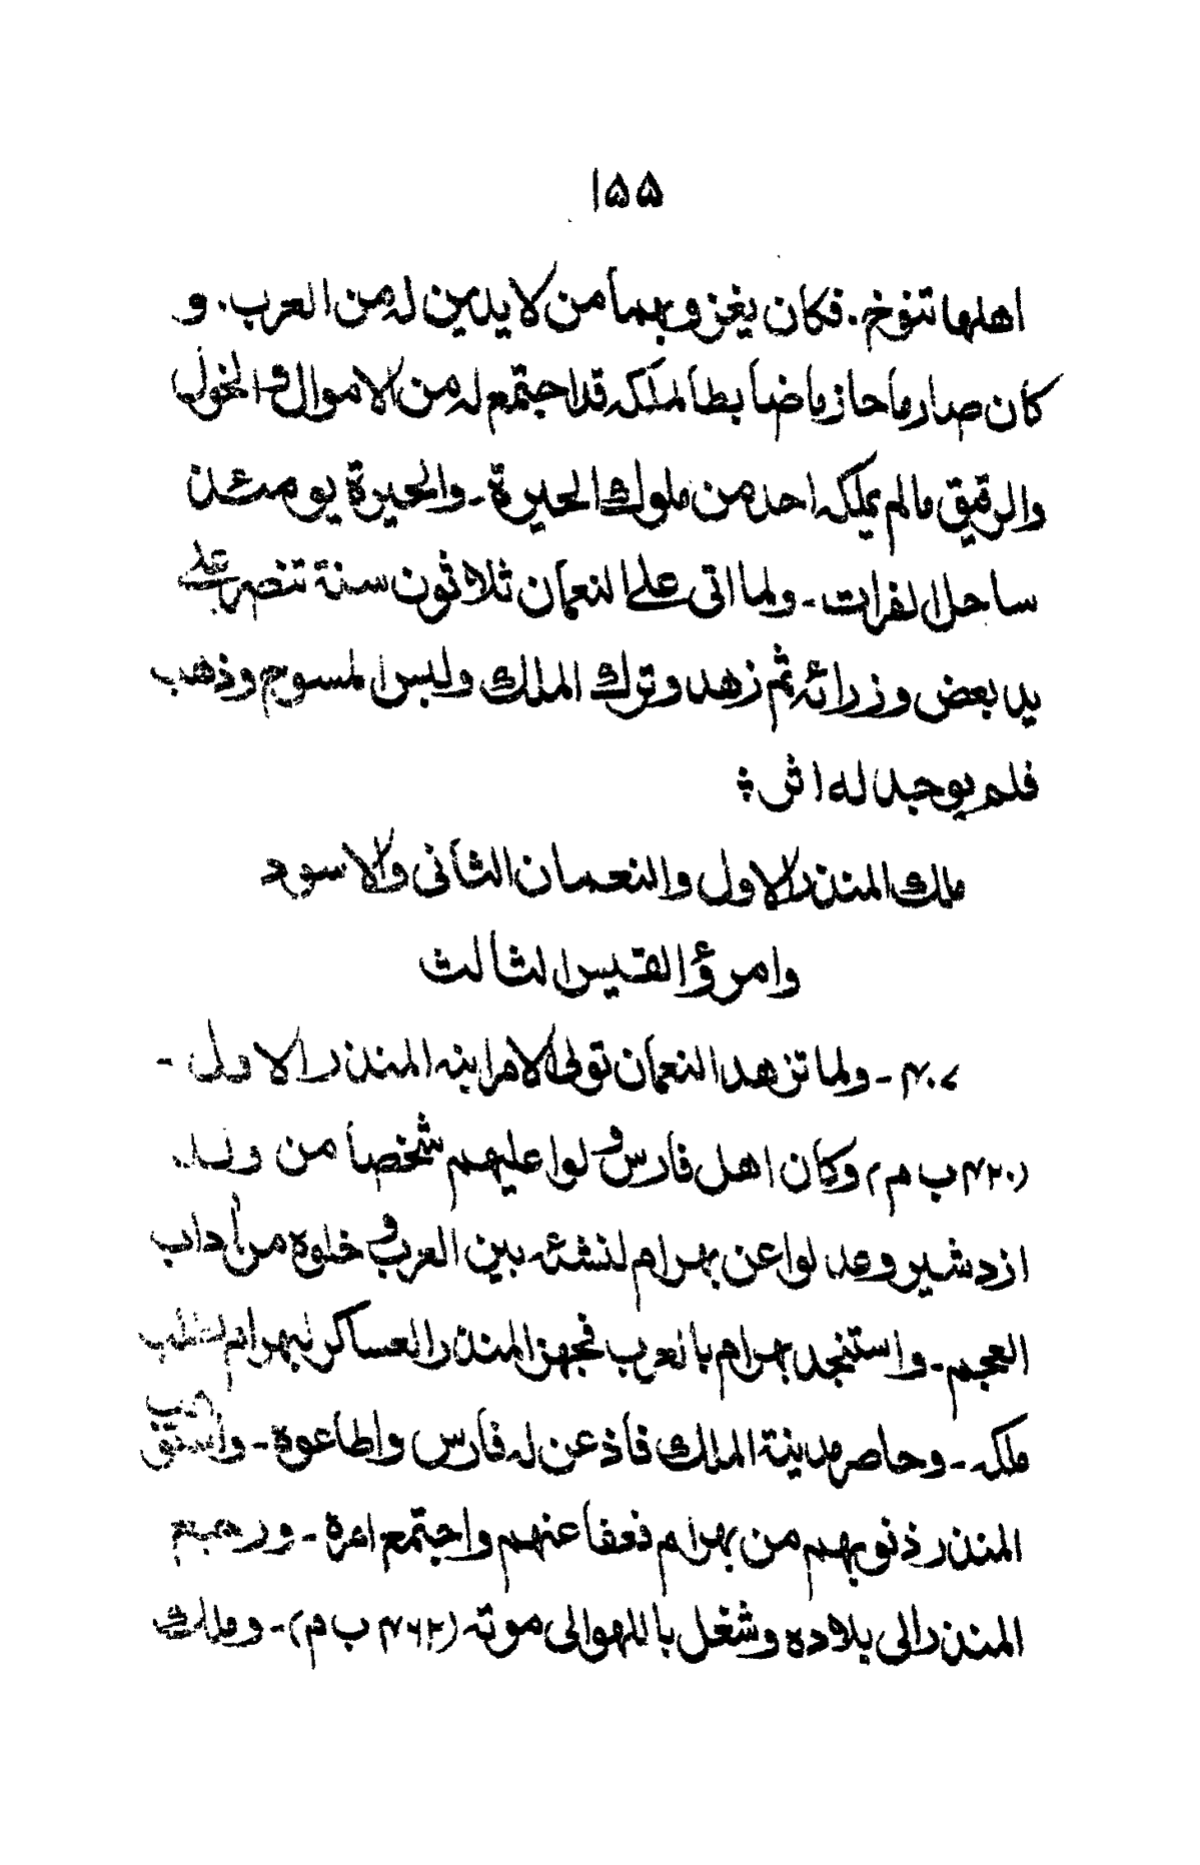 ۱۵۵
اهلها تنوخ. فكان يغزو بهما من لا يدين له من العرب. و
كان صارما حازما ضابطا لملكه قد اجتمع له من الاموال والخول
والرقيق مالم يملكه احد من ملوك الحيرة - والحيرة يومئذ
ساحل الفرات - ولما اتى على النعمان ثلاثون سنة تنصر على
يد بعض وزرائه ثم زهد وترك الملك ولبس المسوح وذهب
فلم يوجد له اثر ؞
ملك المنذر الاول والنعمان الثانى والاسود
وامرؤ القيس الثالث
۴۰۷ - ولما تزهد النعمان تولى الامر ابنه المنذر الاول -
(۴۲۰ ب م) وكان اهل فارس ولوا عليهم شخصا من ولد
ازدشير وعدلوا عن بهرام لنشئه بين العرب وخلوه من آداب
العجم - واستنجد بهرام بالعرب فجهز المنذر العساكر لبهرام لطلب
ملكه - وحاصر مدينة الملك فاذعن له فارس واطاعوه - واستوهب
المنذر ذنوبهم من بهرام فعفا عنهم واجتمع امره - ورجع
المنذر الى بلاده وشغل باللهو الى موته (۴۶۲ ب م) - وملك